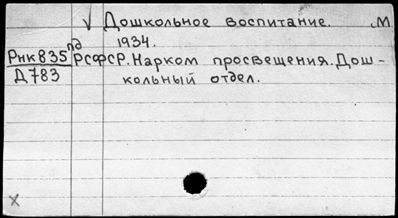 √ Дошкольное воспитание. М
1934.
пд
Рнк835 РСФСР. Нарком просвещения. Дош-
Д783 кольный отдел.
х